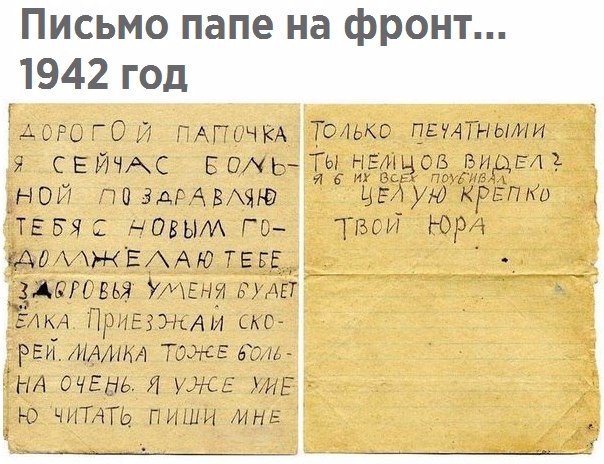 Письмо папе на фронт...
1942 год
ДОРОГОЙ ПАПОЧКА
Я СЕЙЧАС БОЛЬ-
НОЙ ПОЗДРАВЛЯЮ
ТЕБЯ С НОВЫМ ГО-
ДОМ ЖЕЛАЮ ТЕБЕ
ЗДОРОВЬЯ УМЕНЯ БУДЕТ
ЕЛКА. ПРИЕЗЖАЙ СКО-
РЕЙ. МАМКА ТОЖЕ БОЛЬ-
НА ОЧЕНЬ. Я УЖЕ УМЕ
Ю ЧИТАТЬ ПИШИ МНЕ
ТОЛЬКО ПЕЧАТНЫМИ
ТЫ НЕМЦОВ ВИДЕЛ?
Я Б ИХ ВСЕХ ПОУБИВАЛ
ЦЕЛУЮ КРЕПКО
ТВОЙ ЮРА